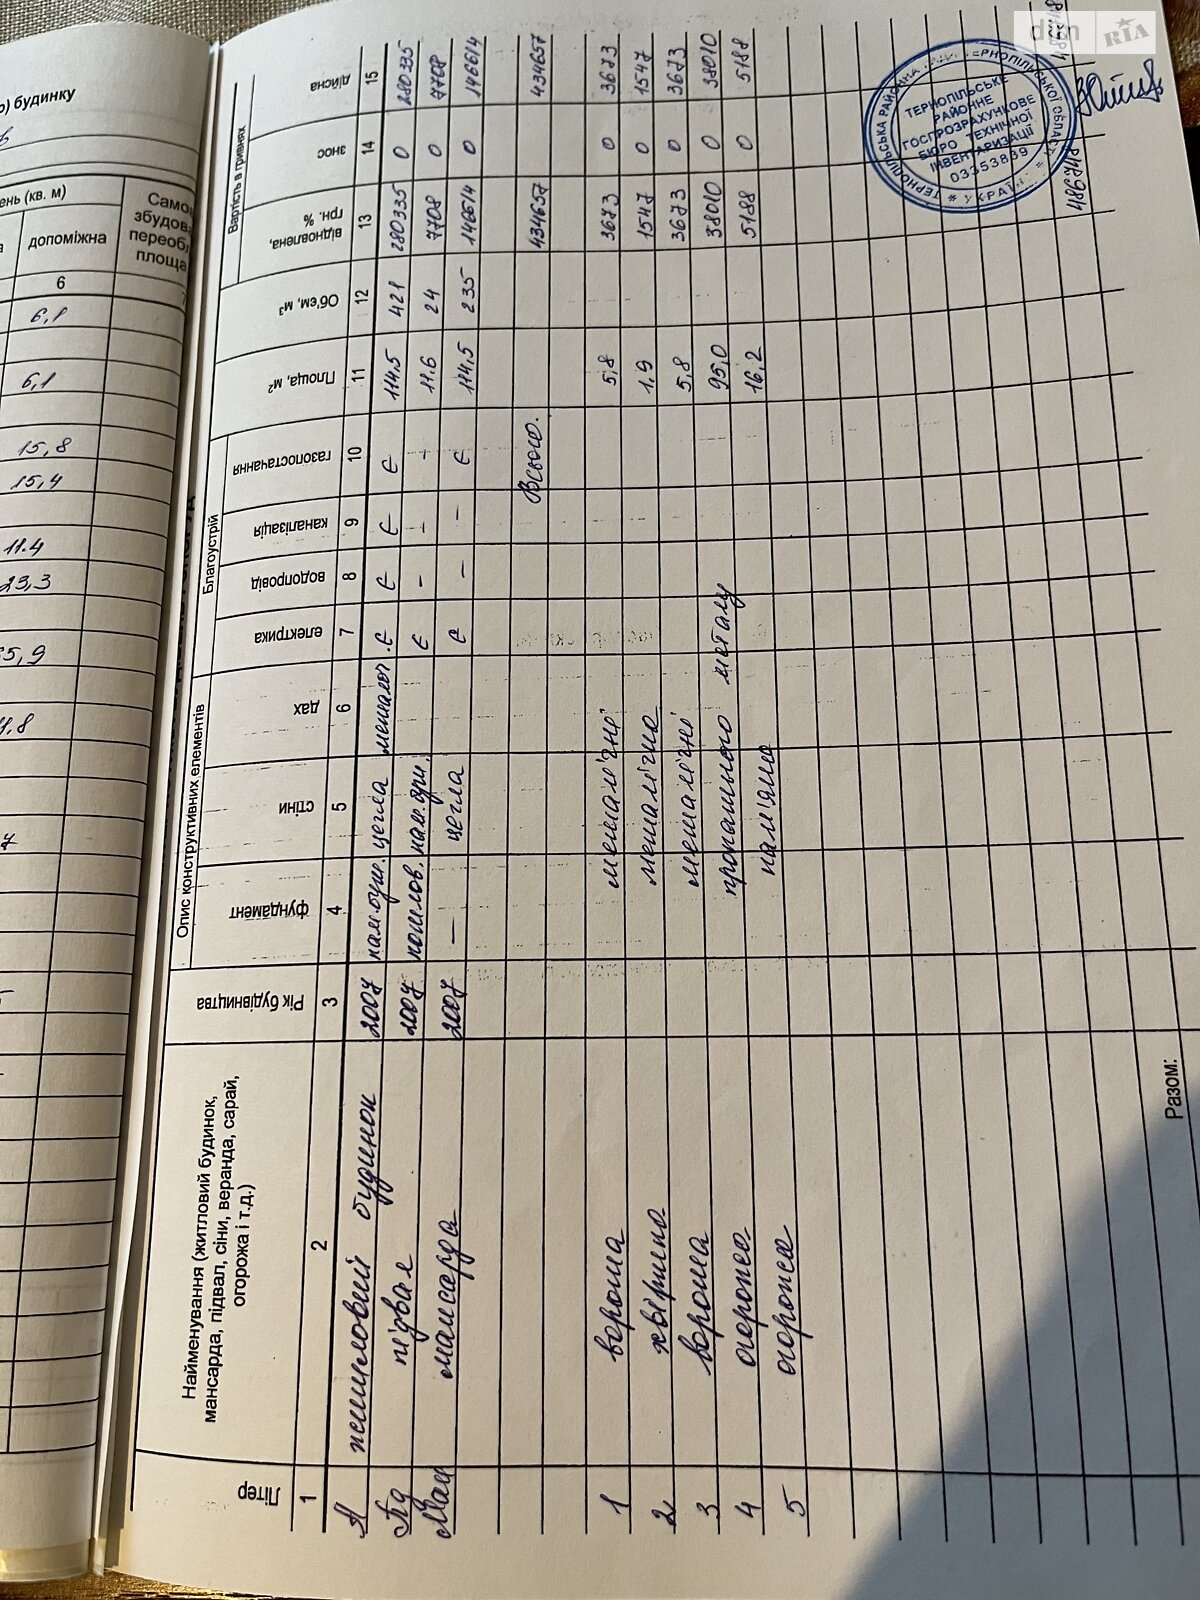 о) будинку
ень (кв. м)
допоміжна
6
6,1
6,1
15,8
15,4
11.4
23,3
5,9
1,8
7
Само
збудова
переоб
площа
Літер
Найменування (житловий будинок,
мансарда, підвал, сіни, веранда, сарай,
огорожа і т.д.)
Рік будівництва
Опис конструктивних елементів
фундамент
стіни
дах
Благоустрій
електрика
водопровід
каналізація
газопостачання
Площа, м²
Об'єм, м³
Вартість в гривнях
відновлена,
грн. %
знос
дійсна
1 2 3 4 5 6 7 8 9 10 11 12 13 14 15
А житловий будинок 2007 цегла є є є є 114.5 421 280335 0 280335
Пд підвал 2007 є - - - 11.6 24 7708 0 7708
Ман мансарда 2007 — цегла є - - є 114,5 235 146614 0 146614
Всього. 434657 434657
1 ворота металічні 5,8 3673 0 3673
2 хвіртка металічна 1,9 1547 0 1547
3 ворота металічні 5,8 3673 0 3673
4 огорожа металу 95,0 38010 0 38010
5 огорожа кам'яна 16,2 5188 0 5188
Разом:
486748
ТЕРНОПІЛЬСЬКЕ
РАЙОННЕ
ГОСПРОЗРАХУНКОВЕ
БЮРО ТЕХНІЧНОЇ
ІНВЕНТАРИЗАЦІЇ
03353839
dim RIA